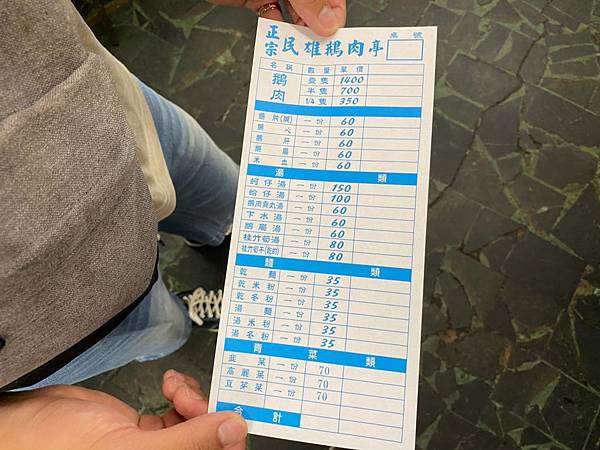 正宗民雄鵝肉亭
桌號
名稱 數量 單價
鵝肉 壹隻 1400
半隻 700
1/4隻 350
鵝胗(腱) 一份 60
鵝心 一份 60
鵝肝 一份 60
鵝腸 一份 60
米血 一份 60
湯類
蚵仔湯 一份 150
蛤仔湯 一份 100
鵝肉貢丸湯 一份 60
下水湯 一份 60
鵝腸湯 一份 60
桂竹筍湯 一份 80
桂竹筍干(乾的) 一份 80
麵類
乾麵 一份 35
乾米粉 一份 35
乾冬粉 一份 35
湯麵 一份 35
湯米粉 一份 35
湯冬粉 一份 35
青菜類
韭菜 一份 70
高麗菜 一份 70
豆芽菜 一份 70
合計